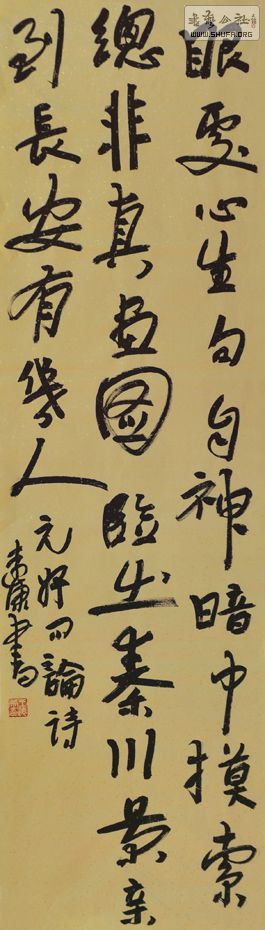 書法公社
WWW.SHUFA.ORG
眼處心生句自神暗中摸索
總非真畫圖臨出秦川景亲
到長安有幾人
元好问論詩